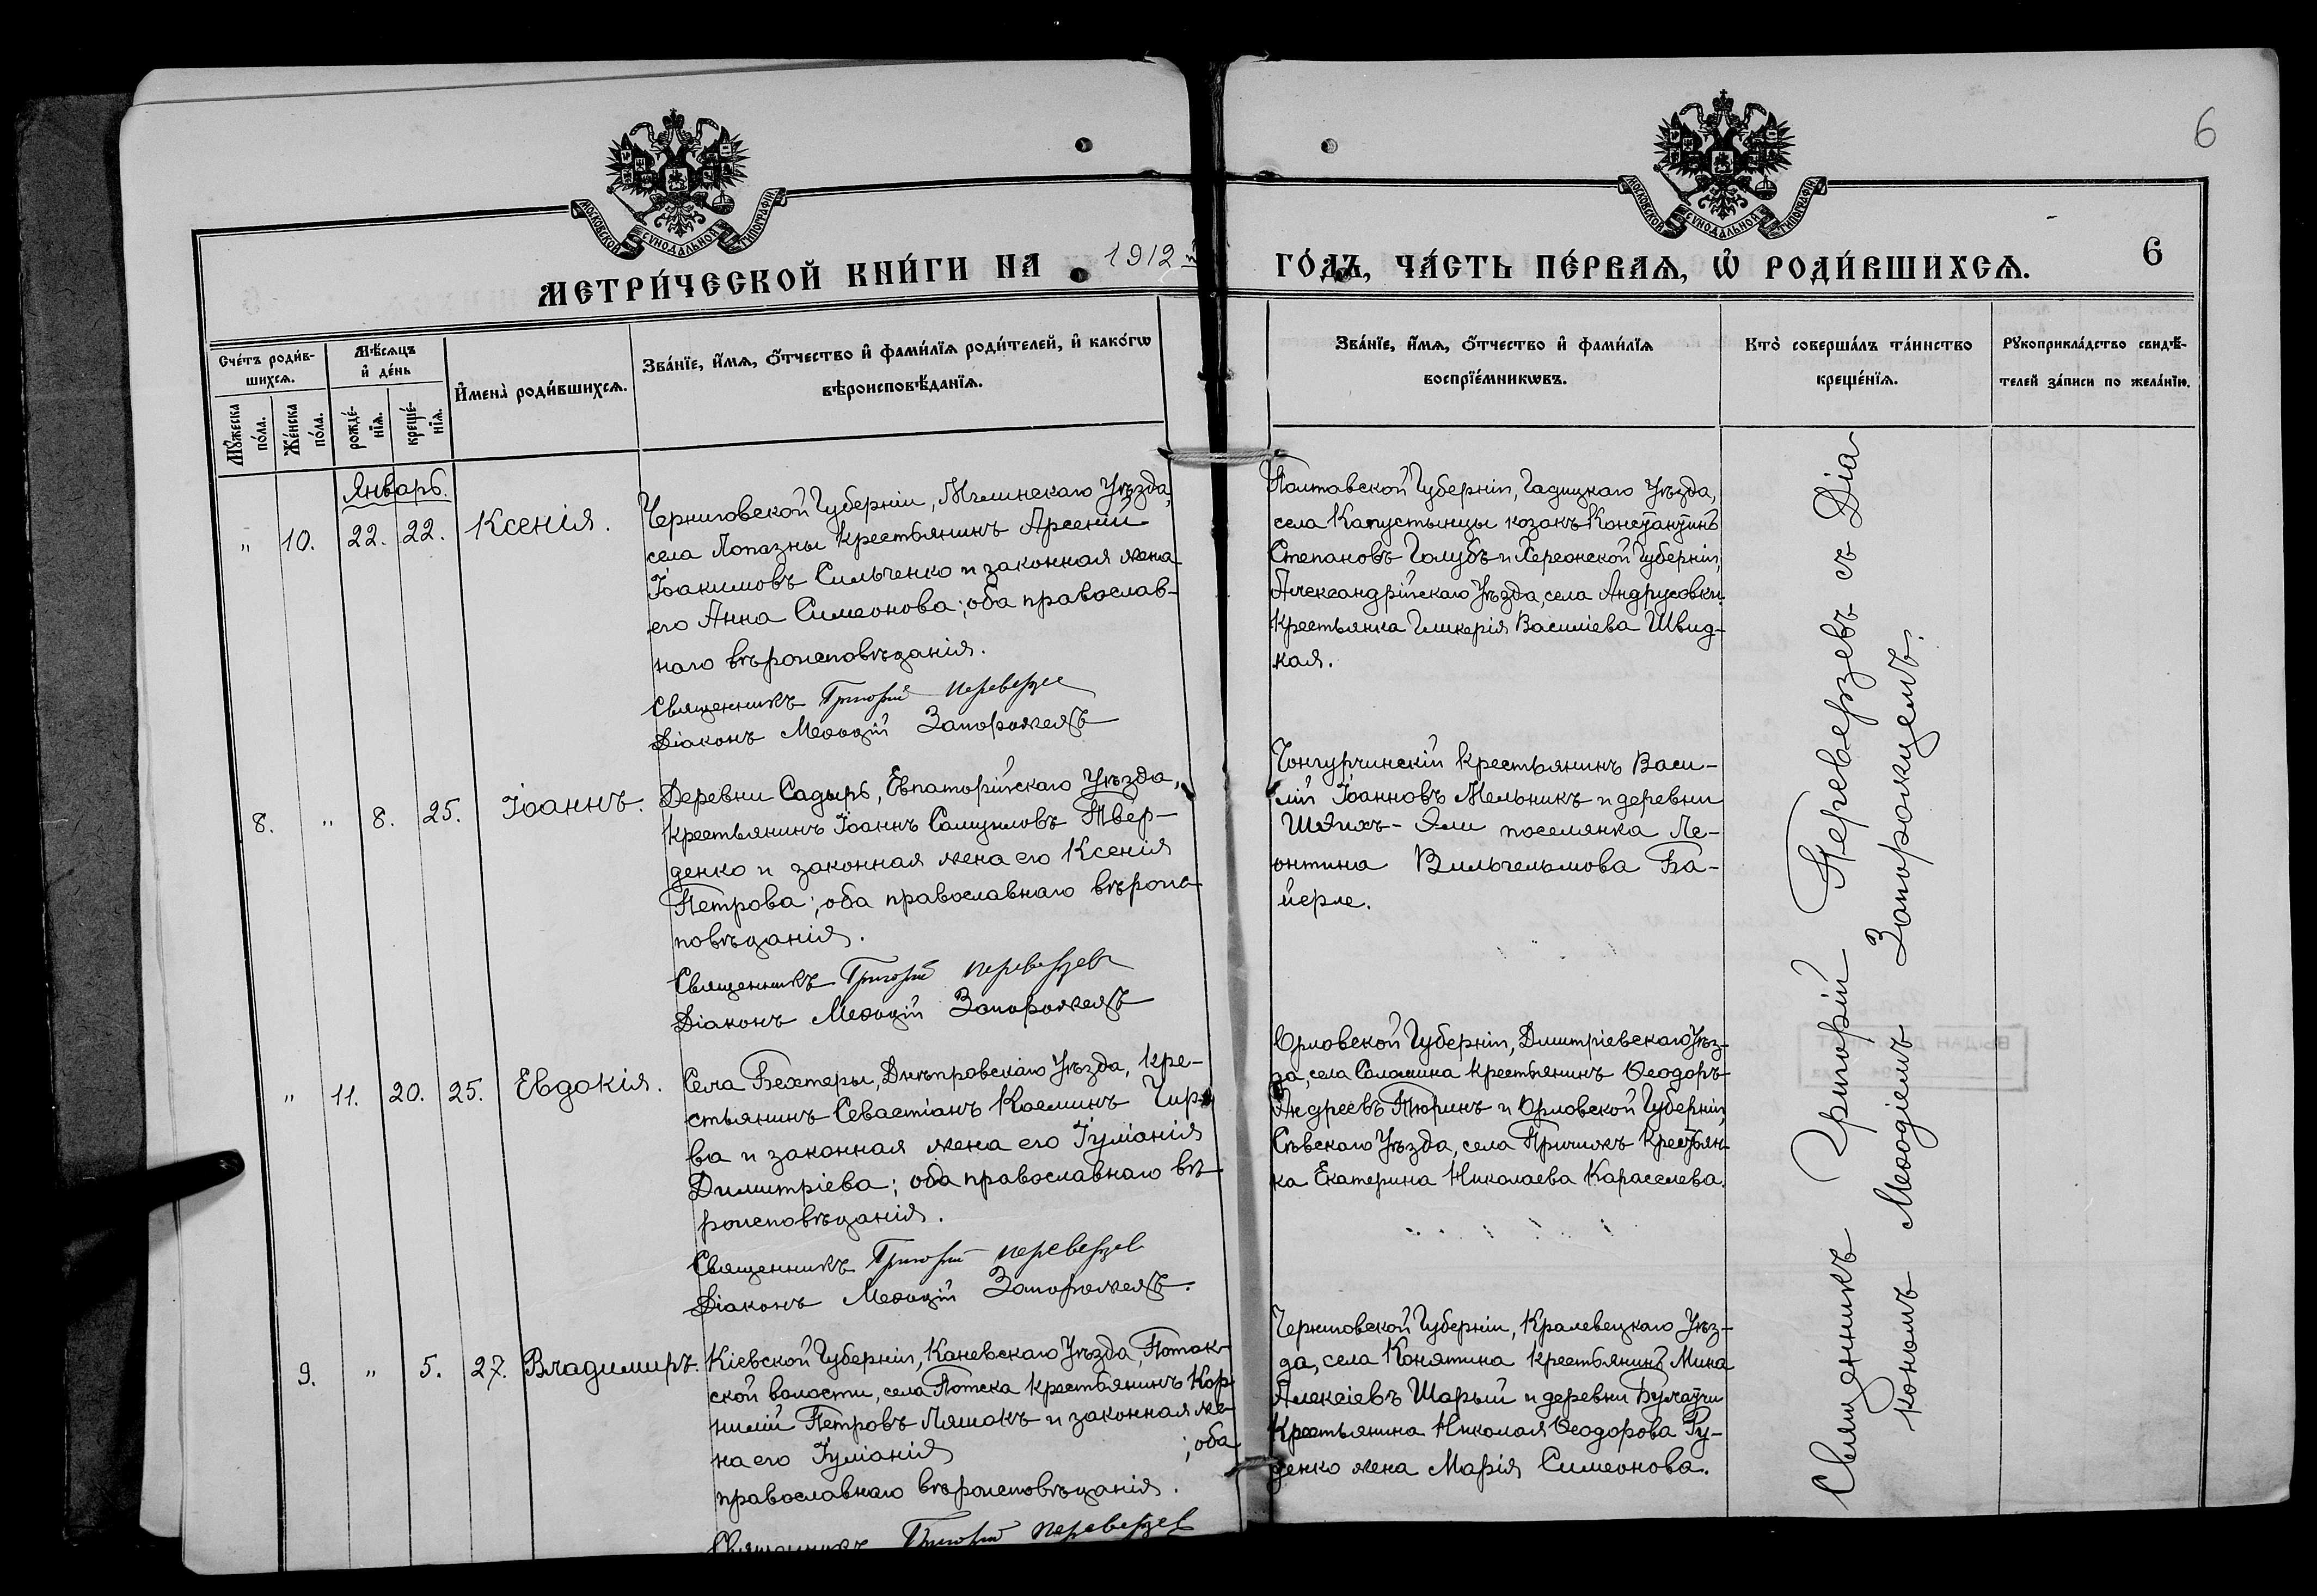 6
МОСКОВСКОЙ СѴНОДАЛЬНОЙ ТИПОГРАФІИ
МОСКОВСКОЙ СѴНОДАЛЬНОЙ ТИПОГРАФІИ
МЕТРИ́ЧЕСКОЙ КНИ́ГИ НА 1912 й
ГО́ДЪ, ЧА́СТЬ ПЕ́РВАѦ, Ѡ҆ РОДИ́ВШИХСѦ. 6
Сче́тъ роди́в-
шихсѧ.
Мꙋ́жеска по́ла.
Же́нска по́ла.
Мѣ́сѧцъ
и҆ де́нь
рожде́-
нїѧ.
креще́-
нїѧ.
И҆мена̀ роди́вшихсѧ.
Зва́нїе, и҆́мѧ, ѻ҆́тчество и҆ фами́лїѧ роди́телей, и҆ како́гѡ
вѣроисповѣ́данїѧ.
Зва́нїе, и҆́мѧ, ѻ҆́тчество и҆ фами́лїѧ
воспрїе́мникѡвъ.
Кто̀ соверша́лъ та́инство
креще́нїѧ.
Рꙋкоприкла́дство свидѣ́-
телей за́писи по жела́нїю.
Январь.
" 10. 22. 22. Ксенія.
Черниговской Губерніи, Мглинскаго Уѣзда,
села Лопазны крестьянинъ Арсеній
Іоакимовъ Сильченко и законная жена
его Анна Симеонова; оба православ-
наго вѣроисповѣданія.
Священникъ Григорій Переверзев
Діаконъ Меѳодій Запорожецъ
Полтавской Губерніи, Гадяцкаго Уѣзда,
села Капустынцы козакъ Константинъ
Степановъ Голубъ и Херсонской Губерніи,
Александрійскаго Уѣзда, села Андрусовки
крестьянка Гликерія Василіева Швид-
кая.
8. " 8. 25. Іоаннъ.
Деревни Садыръ, Евпаторійскаго Уѣзда,
крестьянинъ Іоаннъ Самуиловъ Твер-
денко и законная жена его Ксенія
Петрова; оба православнаго вѣроис-
повѣданія.
Священникъ Григорій Переверзев
Діаконъ Меѳодій Запорожецъ
Чонгурчинскій крестьянинъ Васи-
лій Іоанновъ Мельникъ и деревни
Шейхъ-Эли поселянка Ле-
онтина Вильгельмова Ба-
йерле.
" 11. 20. 25. Евдокія.
Села Бехтеры, Днѣпровскаго Уѣзда, кре-
стьянинъ Севастіанъ Косминъ Чир
ва и законная жена его Іуліанія
Димитріева; оба православнаго вѣ-
роисповѣданія.
Священникъ Григорій Переверзев
Діаконъ Меѳодій Запорожецъ.
Орловской Губерніи, Дмитріевскаго Уѣз-
да, села Саломина крестьянинъ Ѳеодоръ
Андреевъ Тюринъ и Орловской Губерніи,
Сѣвскаго Уѣзда, села крестьян-
ка Екатерина Николаева Караселева.
9. " 5. 27. Владимиръ.
Кіевской Губерніи, Каневскаго Уѣзда, Поток-
ской волости, села Потока крестьянинъ Кор-
нилій Петровъ Ляшокъ и законная же-
на его Іуліанія ; оба
православнаго вѣроисповѣданія.
Священникъ Григорій Переверзев
Черниговской Губерніи, Кролевецкаго Уѣз-
да, села Конятина крестьянинъ Мина
Алексіевъ Шарый и деревни
крестьянина Николая Ѳеодорова Ру-
денко жена Марія Симеонова.
Священникъ Григорій Переверзевъ съ Діа-
кономъ Меѳодіемъ Запорожцемъ.